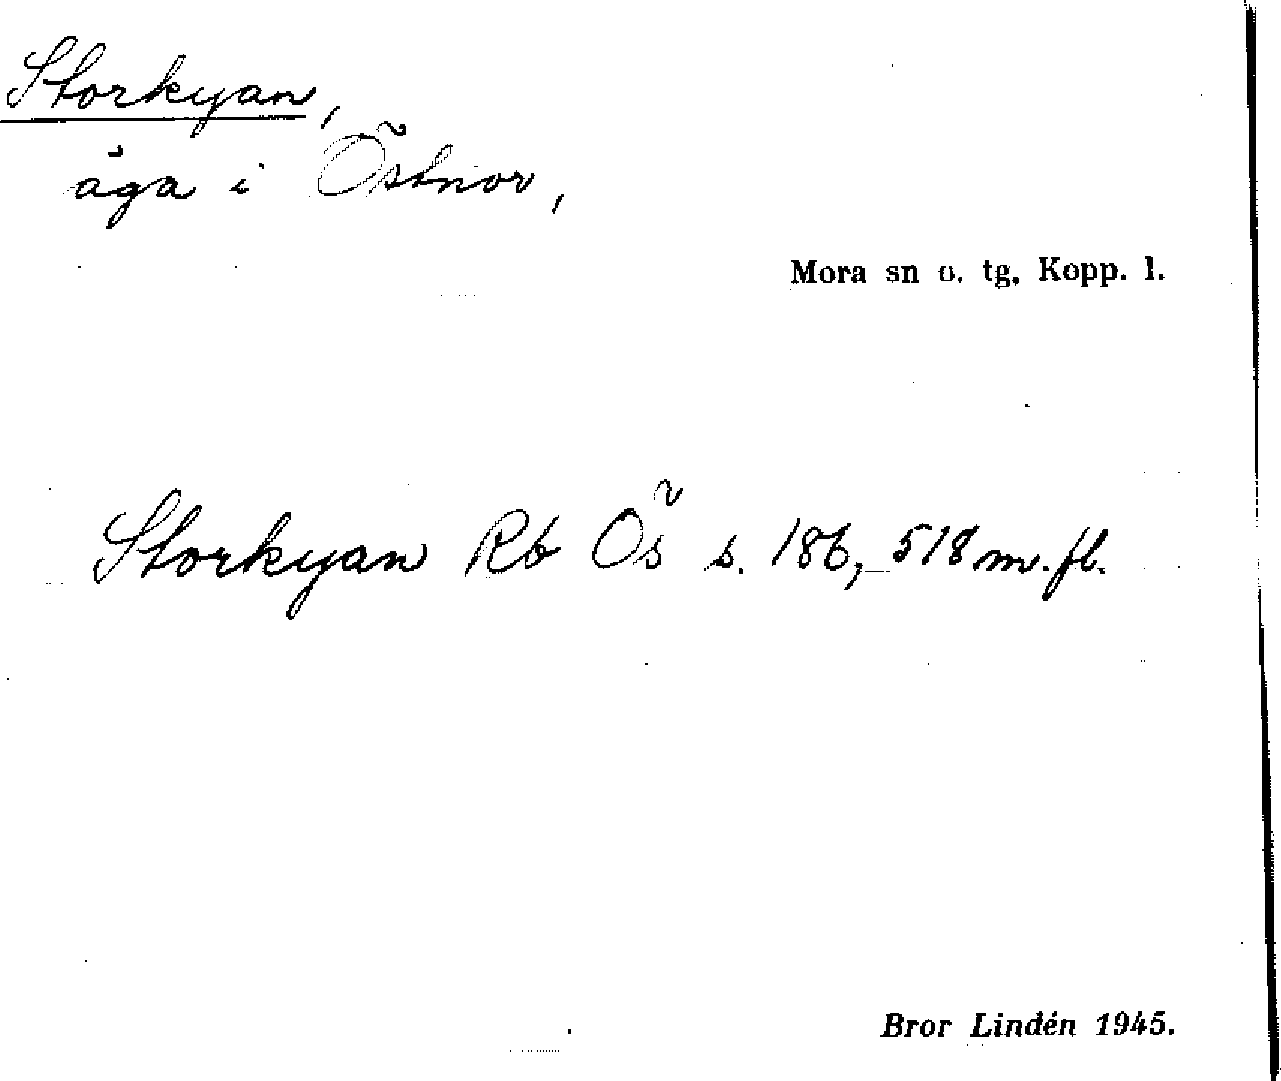 Storkyan,
äga i Östnor,
Mora sn o. tg, Kopp. l.
Storkyan Rb Ös s. 186, 518 m. fl.
Bror Lindén 1945.